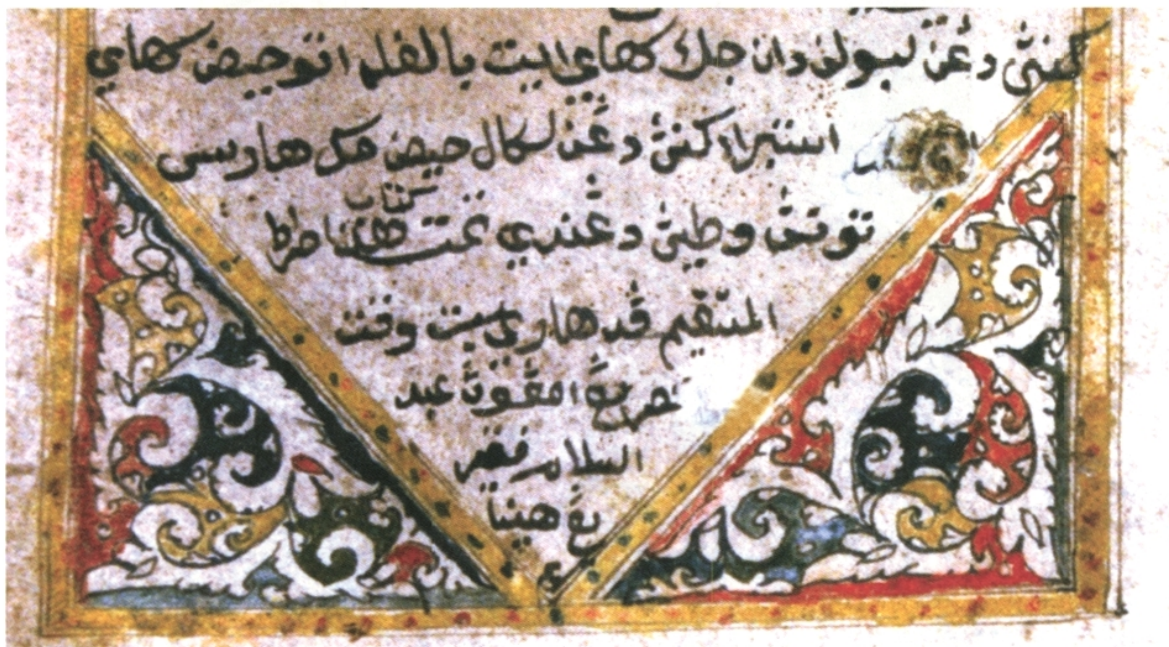 دڠن لبولن دان جك سهاي ايت بالغلم اتو حيض سهاي
استبراء كنتى دڠن سكال حيض مك هارسى
توننى وطئ دڠندي تمت كتاب صراط
المستقيم ڤد هاري سبت وقت
يڠ امڤون عبد
السلام فقير
يڠ هينا